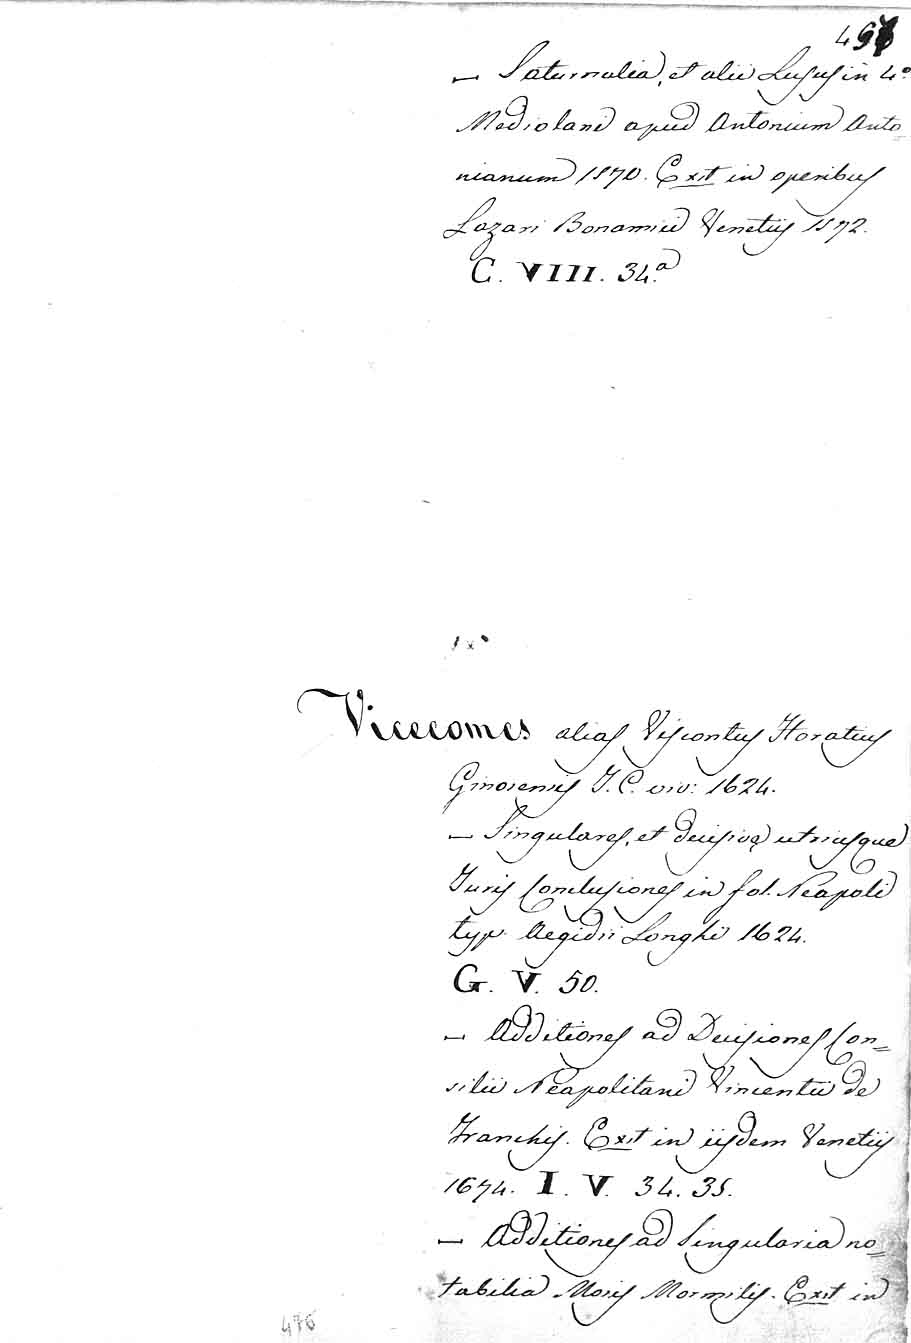 — Saturnalia, et alii Lusus in 4°
Mediolani apud Antonium Anto
nianum 1570. Exit in operibus
Lazari Bonamici Venetiis 1572.
C. VIII. 34.a
Vicecomes alias Viscontus Horatius
J. C. viv: 1624.
— Singulares, et decisivę utriusque
Juris Conclusiones in fol. Neapoli
typ. Aegidii Longhi 1624.
G. V. 50.
— Additiones ad Decisiones Con=
silii Neapolitani Vincentii de
Franchis. Exit in iisdem Venetiis
1674. I. V. 34. 35.
— Additiones ad Singularia no=
tabilia Mormilis. Exit in
476